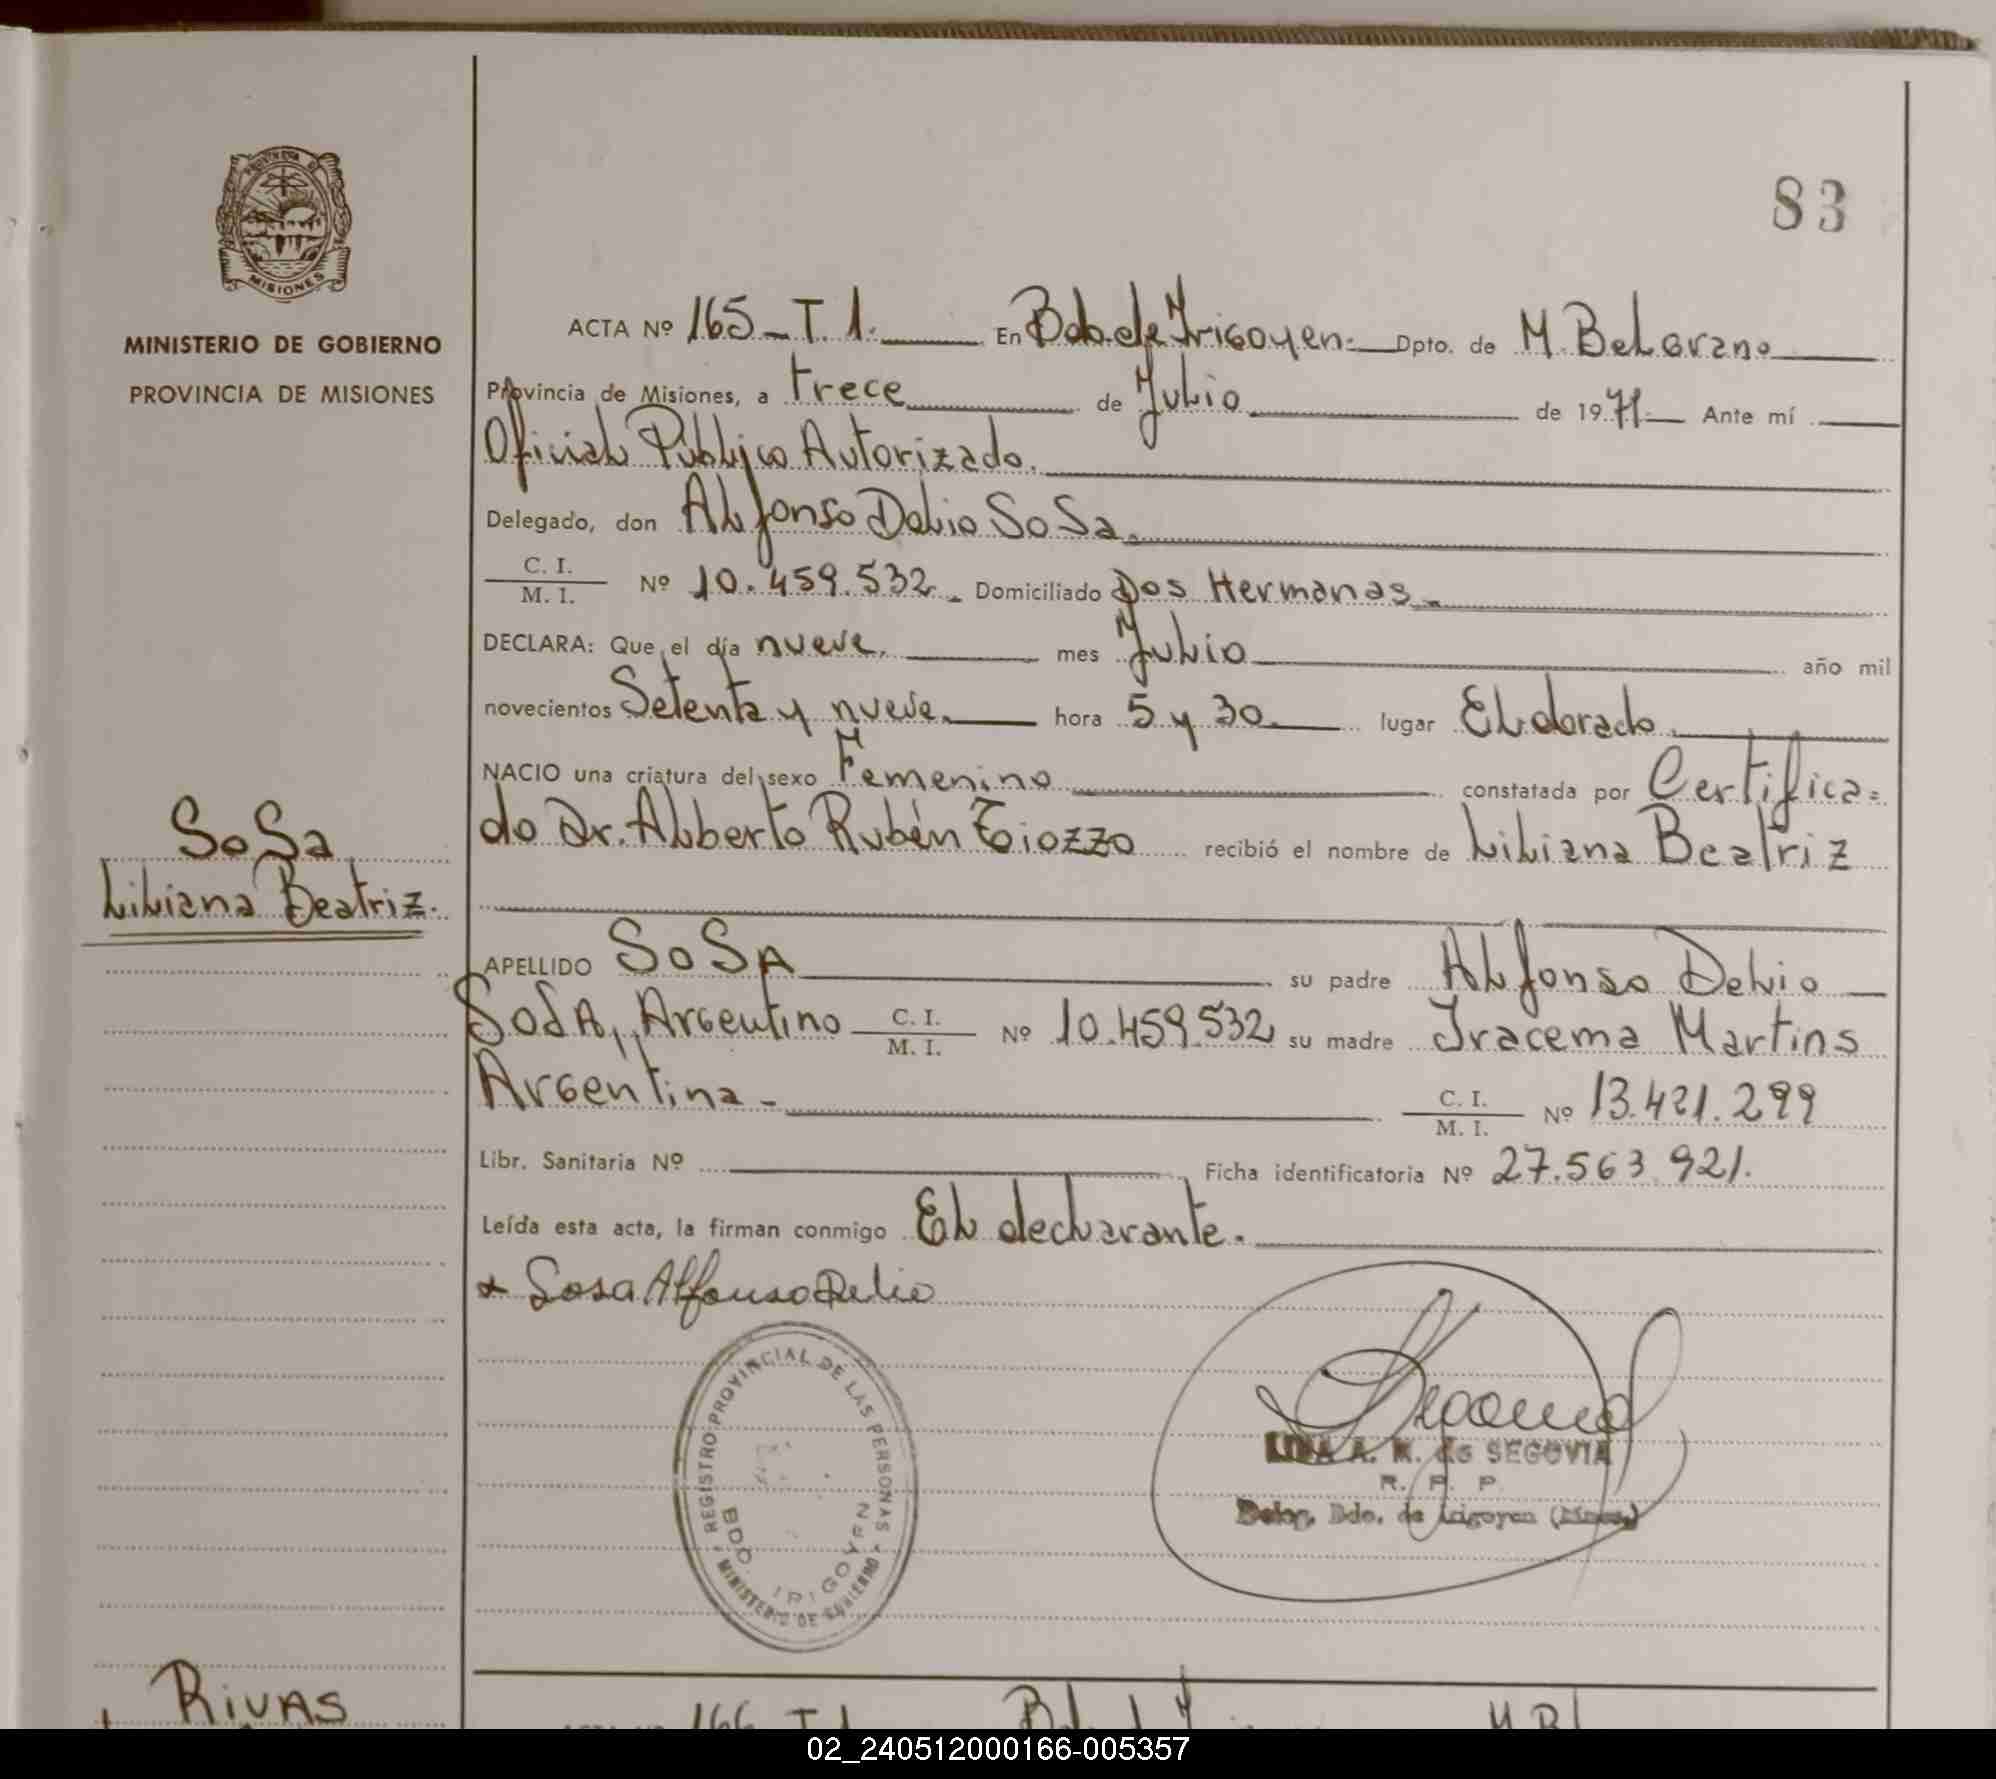 83
PROVINCIA DE
MISIONES
MINISTERIO DE GOBIERNO
PROVINCIA DE MISIONES
ACTA Nº 165_T.1. En Bdo. de Irigoyen. Dpto. de M. Belgrano
Provincia de Misiones, a trece de Julio de 1971 Ante mí
Oficial Público Autorizado.
Delegado, don Alfonso Delio Sosa.
C. I. / M. I. Nº 10.459.532. Domiciliado Dos Hermanas.
DECLARA: Que el día nueve. mes Julio año mil
novecientos Setenta y nueve. hora 5 y 30. lugar Eldorado.
NACIO una criatura del sexo Femenino constatada por Certifica=
do Dr. Alberto Rubén Tiozzo recibió el nombre de Liliana Beatriz
SoSa
Liliana Beatriz.
APELLIDO SoSA su padre Alfonso Delio
SoSA, Argentino C. I. / M. I. Nº 10.459.532 su madre Iracema Martins
Argentina - C. I. / M. I. Nº 13.421.299
Libr. Sanitaria Nº Ficha identificatoria Nº 27.563.921.
Leída esta acta, la firman conmigo El declarante.
x Sosa Alfonso Delio
REGISTRO PROVINCIAL DE LAS PERSONAS
BDO. IRIGOYEN
MINISTERIO DE GOBIERNO
A. M. de SEGOVIA
R. P. P.
Deleg. Bdo. de Irigoyen (Mnes.)
RIVAS
166 T.1
02_240512000166-005357